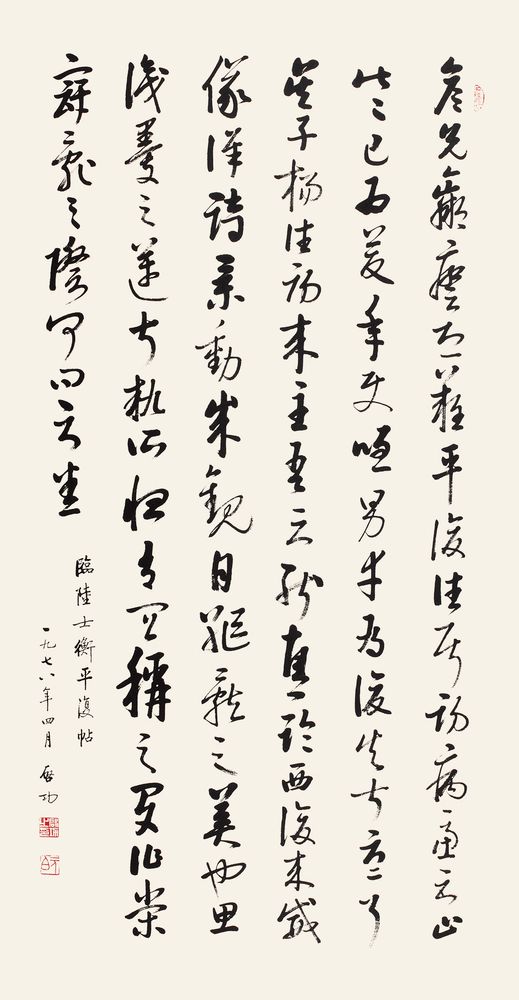 彥先羸瘵恐難平復往屬初病慮不止
此已為慶承使唯男幸為復失前憂耳
吳子楊往初來主吾不能盡臨西復來威
儀詳跱舉動成觀自軀體之美也思
識量之邁前執所恒有宜稱之夏伯榮
寇亂之際聞問不悉
臨陸士衡平復帖
一九七八年四月 啟功